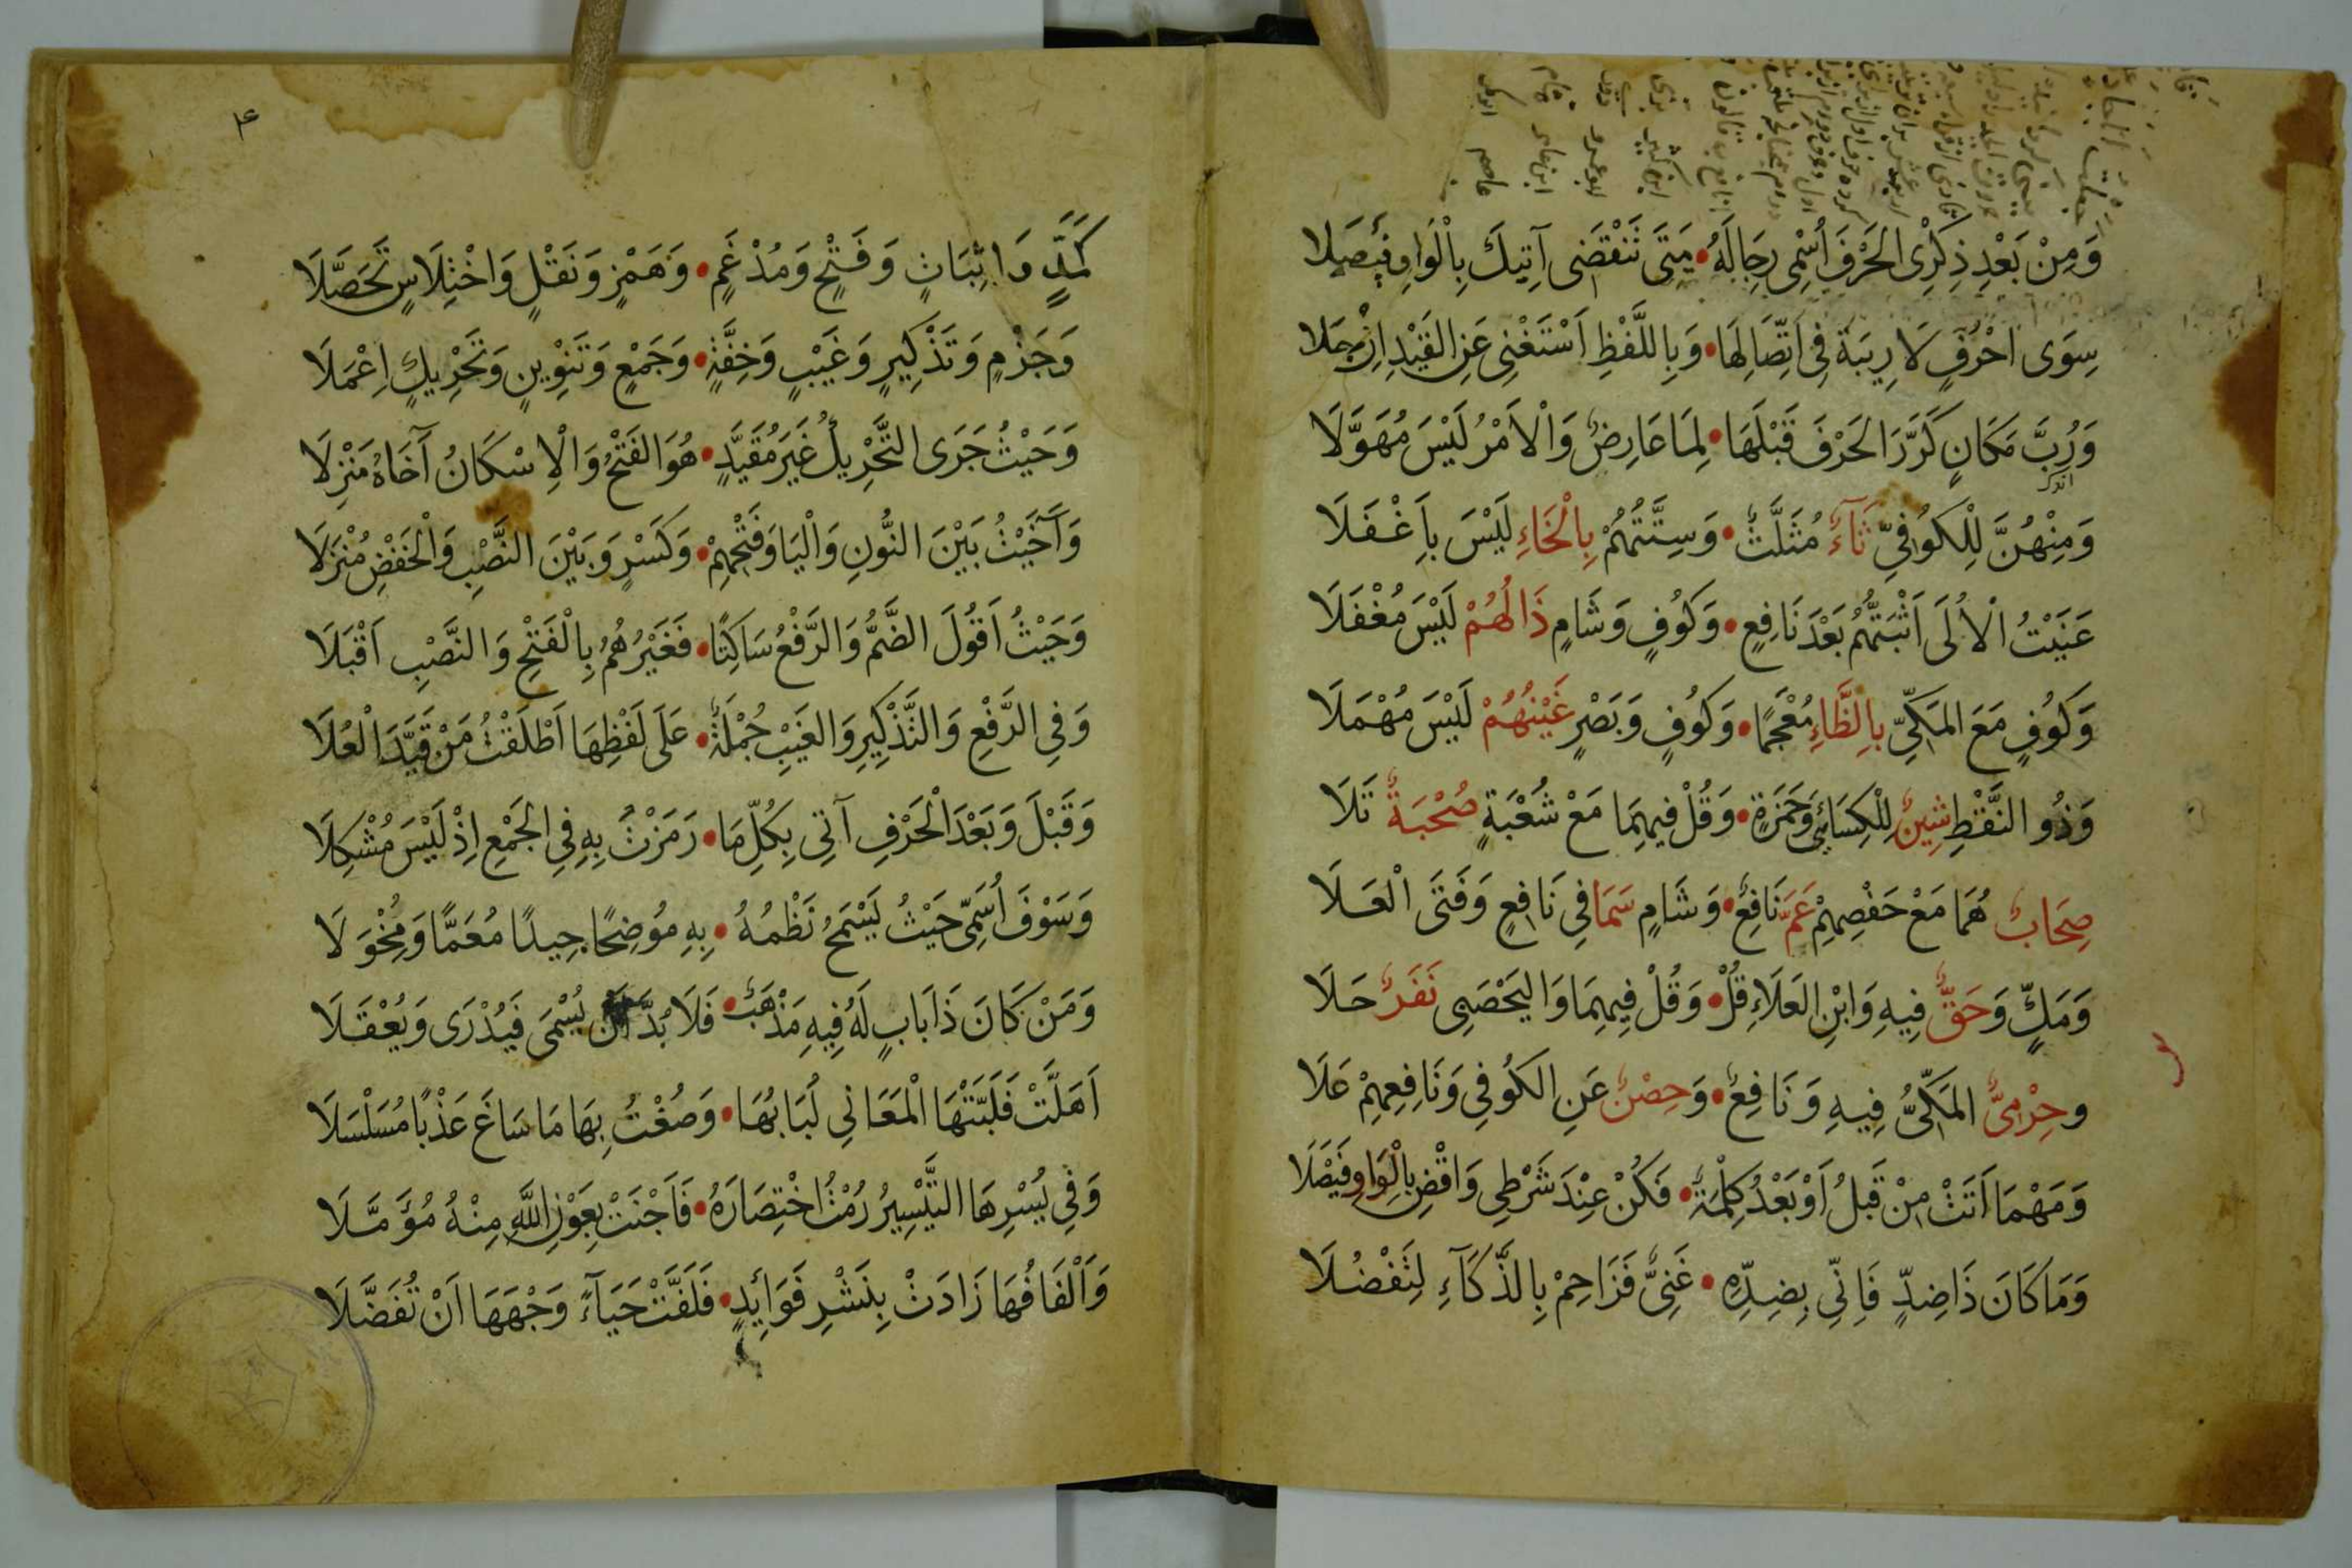 وَمِنْ بَعْدِ ذِكْرِى الْحَرْفَ اُسْمِى رِجَالَهُ • مَتَى تَنْقَضِى آتِيكَ بِالْوَاوِ فَيْصَلَا
سِوَى اَحْرُفٍ لَا رِيبَةٌ فِى اتِّصَالِهَا • وَبِاللَّفْظِ اَسْتَغْنِى عَنِ القَيْدِ اِنْ جَلَا
وَرُبَّ مَكَانٍ كَرَّرَ الْحَرْفَ قَبْلَهَا • لِمَا عَارِضٌ وَالْاَمْرُ لَيْسَ مُهَوَّلَا
وَمِنْهُنَّ لِلْكُوفِىِّ ثَآءٌ مُثَلَّثٌ • وَسِتَّتُهُمْ بِالْخَاءِ لَيْسَ بِاَغْفَلَا
عَنَيْتُ الْاُلَى اَثْبَتُّهُمْ بَعْدَ نَافِعٍ • وَكُوفٍ وَشَامٍ ذَالُهُمْ لَيْسَ مُغْفَلَا
وَكُوفٍ مَعَ المَكِّىِّ بِالظَّاءِ مُعْجَمًا • وَكُوفٍ وَبَصْرٍ غَيْنُهُمْ لَيْسَ مُهْمَلَا
وَذُو النَّقْطِ شِينٌ لِلْكِسَائِى وَحَمْزَةٍ • وَقُلْ فِيهِمَا مَعْ شُعْبَةٍ صُحْبَةٌ تَلَا
صِحَابٌ هُمَا مَعْ حَفْصِهِمْ عَمَّ نَافِعٌ • وَشَامٍ سَمَا فِي نَافِعٍ وَفَتَى الْعَلَا
وَمَكٍّ وَحَقٌّ فِيهِ وَابْنِ العَلَاءِ قُلْ • وَقُلْ فِيهِمَا وَاليَحْصَبِى نَفَرٌ حَلَا
وحِرْمِىٌّ المَكِّىُّ فِيهِ وَنَافِعٌ • وَحِصْنٌ عَنِ الكُوفِى وَنَافِعِهِمْ عَلَا
وَمَهْمَا اَتَتْ مِنْ قَبْلُ اَوْ بَعْدُ كِلْمَةٌ • فَكُنْ عِنْدَ شَرْطِى وَاقْضِ بِالْوَاوِ فَيْصَلَا
وَمَا كَانَ ذَا ضِدٍّ فَاِنِّى بِضِدِّهِ • غَنِىٌّ فَزَاحِمْ بِالذَّكَآءِ لِتَفْضُلَا
۴
كَمَدٍّ وَاِثْبَاتٍ وَفَتْحٍ وَمُدْغَمٍ • وَهَمْزٍ وَنَقْلٍ وَاخْتِلَاسٍ تَحَصَّلَا
وَجَزْمٍ وَتَذْكِيرٍ وَغَيْبٍ وَخِفَّةٍ • وَجَمْعٍ وَتَنْوِينٍ وَتَحْرِيكٍ اِعْمَلَا
وَحَيْثُ جَرَى التَّحْرِيكُ غَيْرَ مُقَيَّدٍ • هُوَ الفَتْحُ وَالْاِسْكَانُ آخَاهُ مَنْزِلَا
وَآخَيْتُ بَيْنَ النُّونِ وَالْيَا وَفَتْحِهِمْ • وَكَسْرٍ وَبَيْنَ النَّصْبِ وَالْخَفْضِ مُنْزِلَا
وَحَيْثُ اَقُولُ الضَّمُّ وَالرَّفْعُ سَاكِتًا • فَغَيْرُهُمُ بِالْفَتْحِ وَالنَّصْبِ اَقْبَلَا
وَفِى الرَّفْعِ وَالتَّذْكِيرِ وَالغَيْبِ جُمْلَةٌ • عَلَى لَفْظِهَا اَطْلَقْتُ مَنْ قَيَّدَ الْعُلَا
وَقَبْلَ وَبَعْدَ الْحَرْفِ آتِى بِكُلِّ مَا • رَمَزْتُ بِهِ فِى الْجَمْعِ اِذْ لَيْسَ مُشْكِلَا
وَسَوْفَ اُسَمِّى حَيْثُ يَسْمَحُ نَظْمُهُ • بِهِ مُوضِحًا جِيدًا مُعَمًّا وَمُخْوَلَا
وَمَنْ كَانَ ذَا بَابٍ لَهُ فِيهِ مَذْهَبٌ • فَلَا بُدَّ اَنْ يُسْمَى فَيُدْرَى وَيُعْقَلَا
اَهَلَّتْ فَلَبَّتْهَا الْمَعَانِى لُبَابُهَا • وَصُغْتُ بِهَا مَا سَاغَ عَذْبًا مُسَلْسَلَا
وَفِى يُسْرِهَا التَّيْسِيرُ رُمْتُ اخْتِصَارَهُ • فَاَجْنَتْ بِعَوْنِ اللَّهِ مِنْهُ مُؤَمَّلَا
وَاَلْفَافُهَا زَادَتْ بِنَشْرِ فَوَائِدٍ • فَلَفَّتْ حَيَآءً وَجْهَهَا اَنْ تُفَضَّلَا